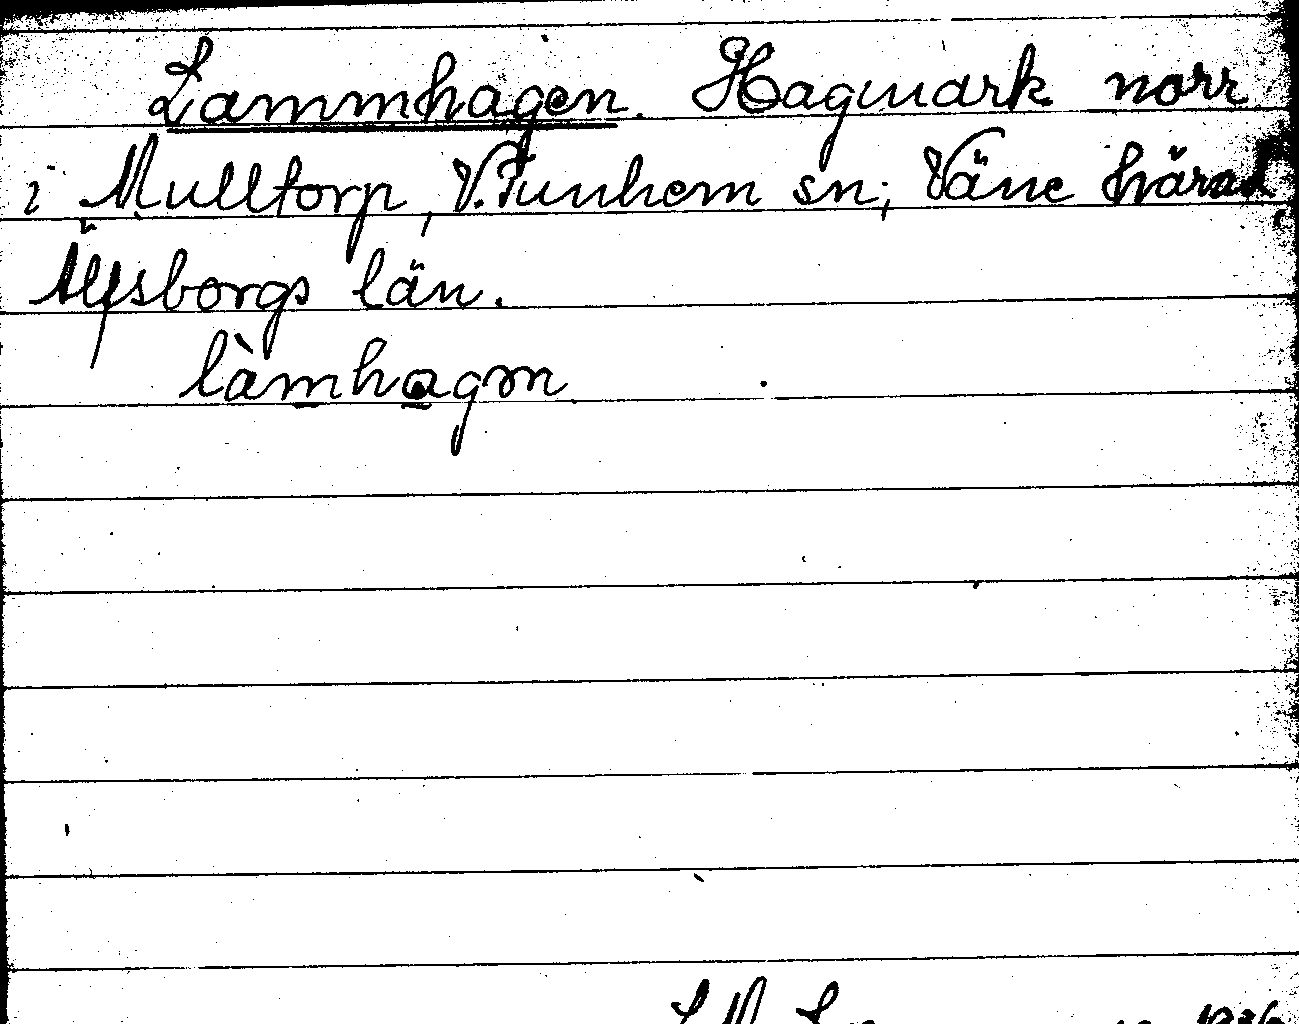 Lammhagen. Hagmark norr
i Mulltorp, V. Tunhem sn; Väne härad
Älfsborgs län.
làmhagen